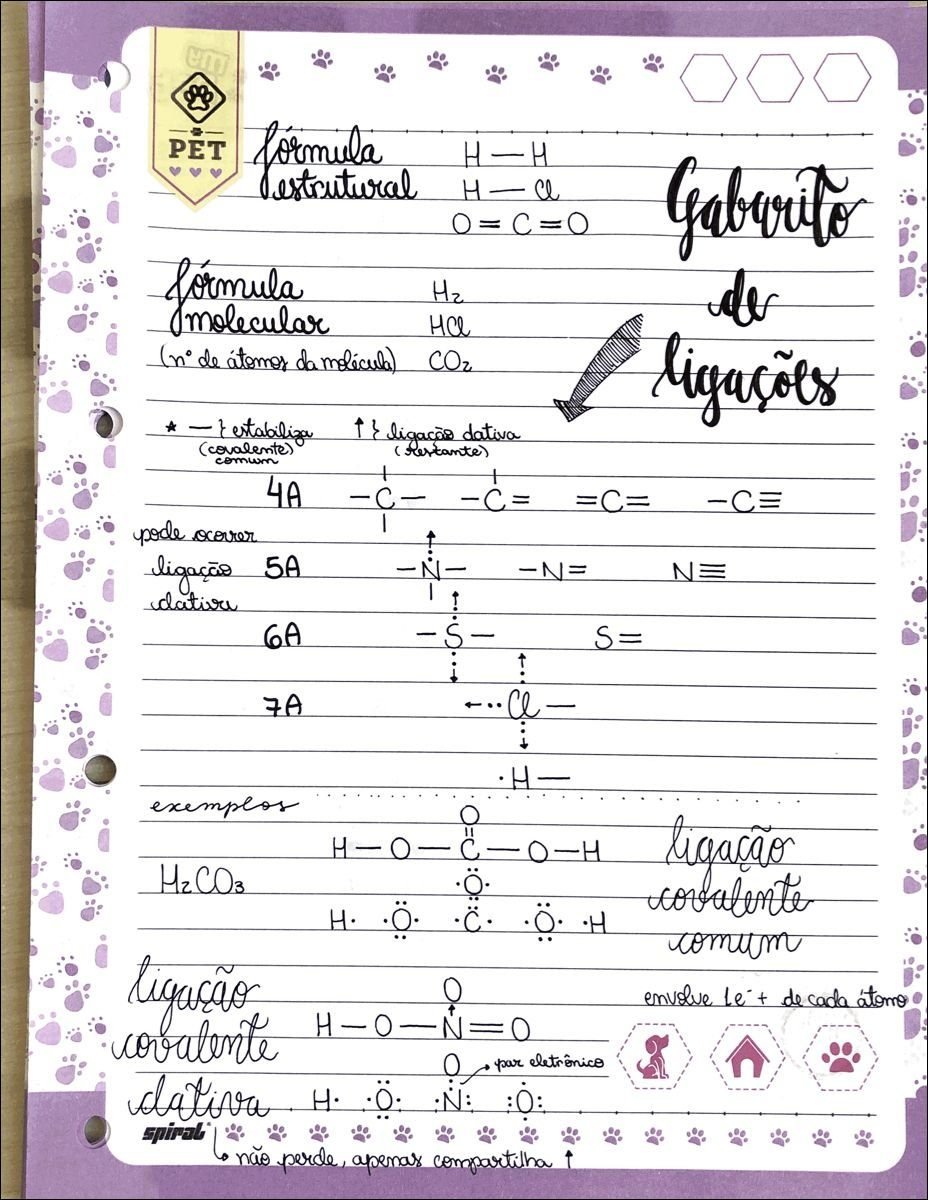 PET
fórmula H — H
estrutural H — Cl
O = C = O
Gabarito
de
ligações
fórmula H₂
molecular HCl
(nº de átomos da molécula) CO₂
* — } estabiliza ↑ } ligação dativa
(covalente) (restante)
comum
4A —C— —C= =C= —C≡
pode ocorrer
ligação 5A —N— —N= N≡
dativa
6A —S— S=
7A ←··Cl—
·H—
exemplos
O
H—O—C—O—H
H₂CO₃
·Ö·
H· ·Ö· ·C· ·Ö· ·H
ligação
covalente
comum
envolve 1e⁻ + de cada átomo
ligação
covalente
dativa
O
H—O—N=O
O → par eletrônico
H· ·Ö: :N: :Ö:
spiral
↳ não perde, apenas compartilha ↑